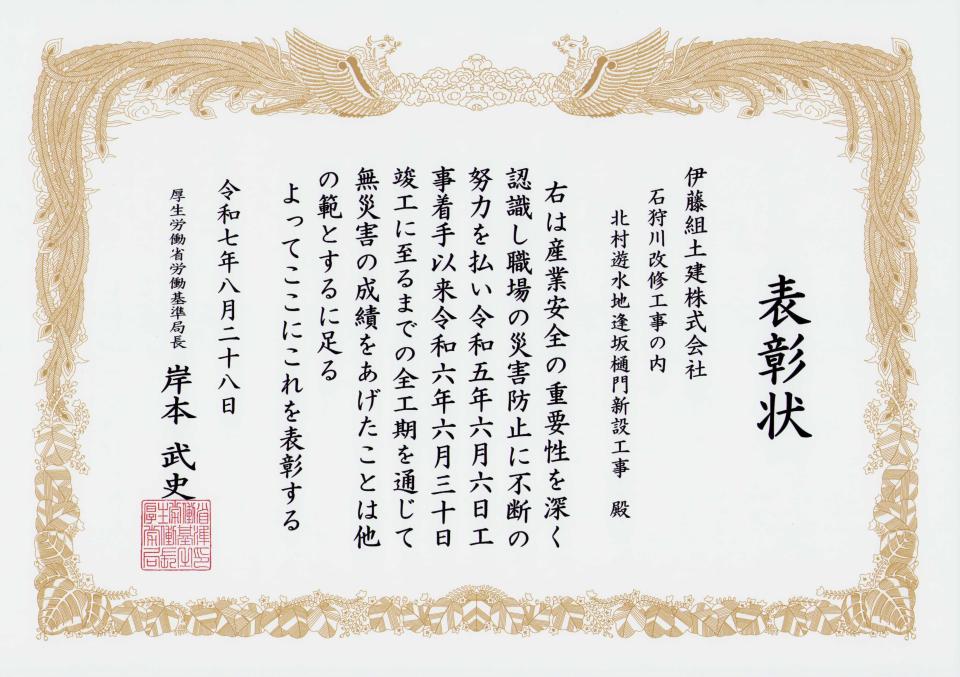 表彰状
伊藤組土建株式会社
石狩川改修工事の内
北村遊水地逢坂樋門新設工事 殿
右は産業安全の重要性を深く
認識し職場の災害防止に不断の
努力を払い令和五年六月六日工
事着手以来令和六年六月三十日
竣工に至るまでの全工期を通じて
無災害の成績をあげたことは他
の範とするに足る
よってここにこれを表彰する
令和七年八月二十八日
厚生労働省労働基準局長 岸本 武史